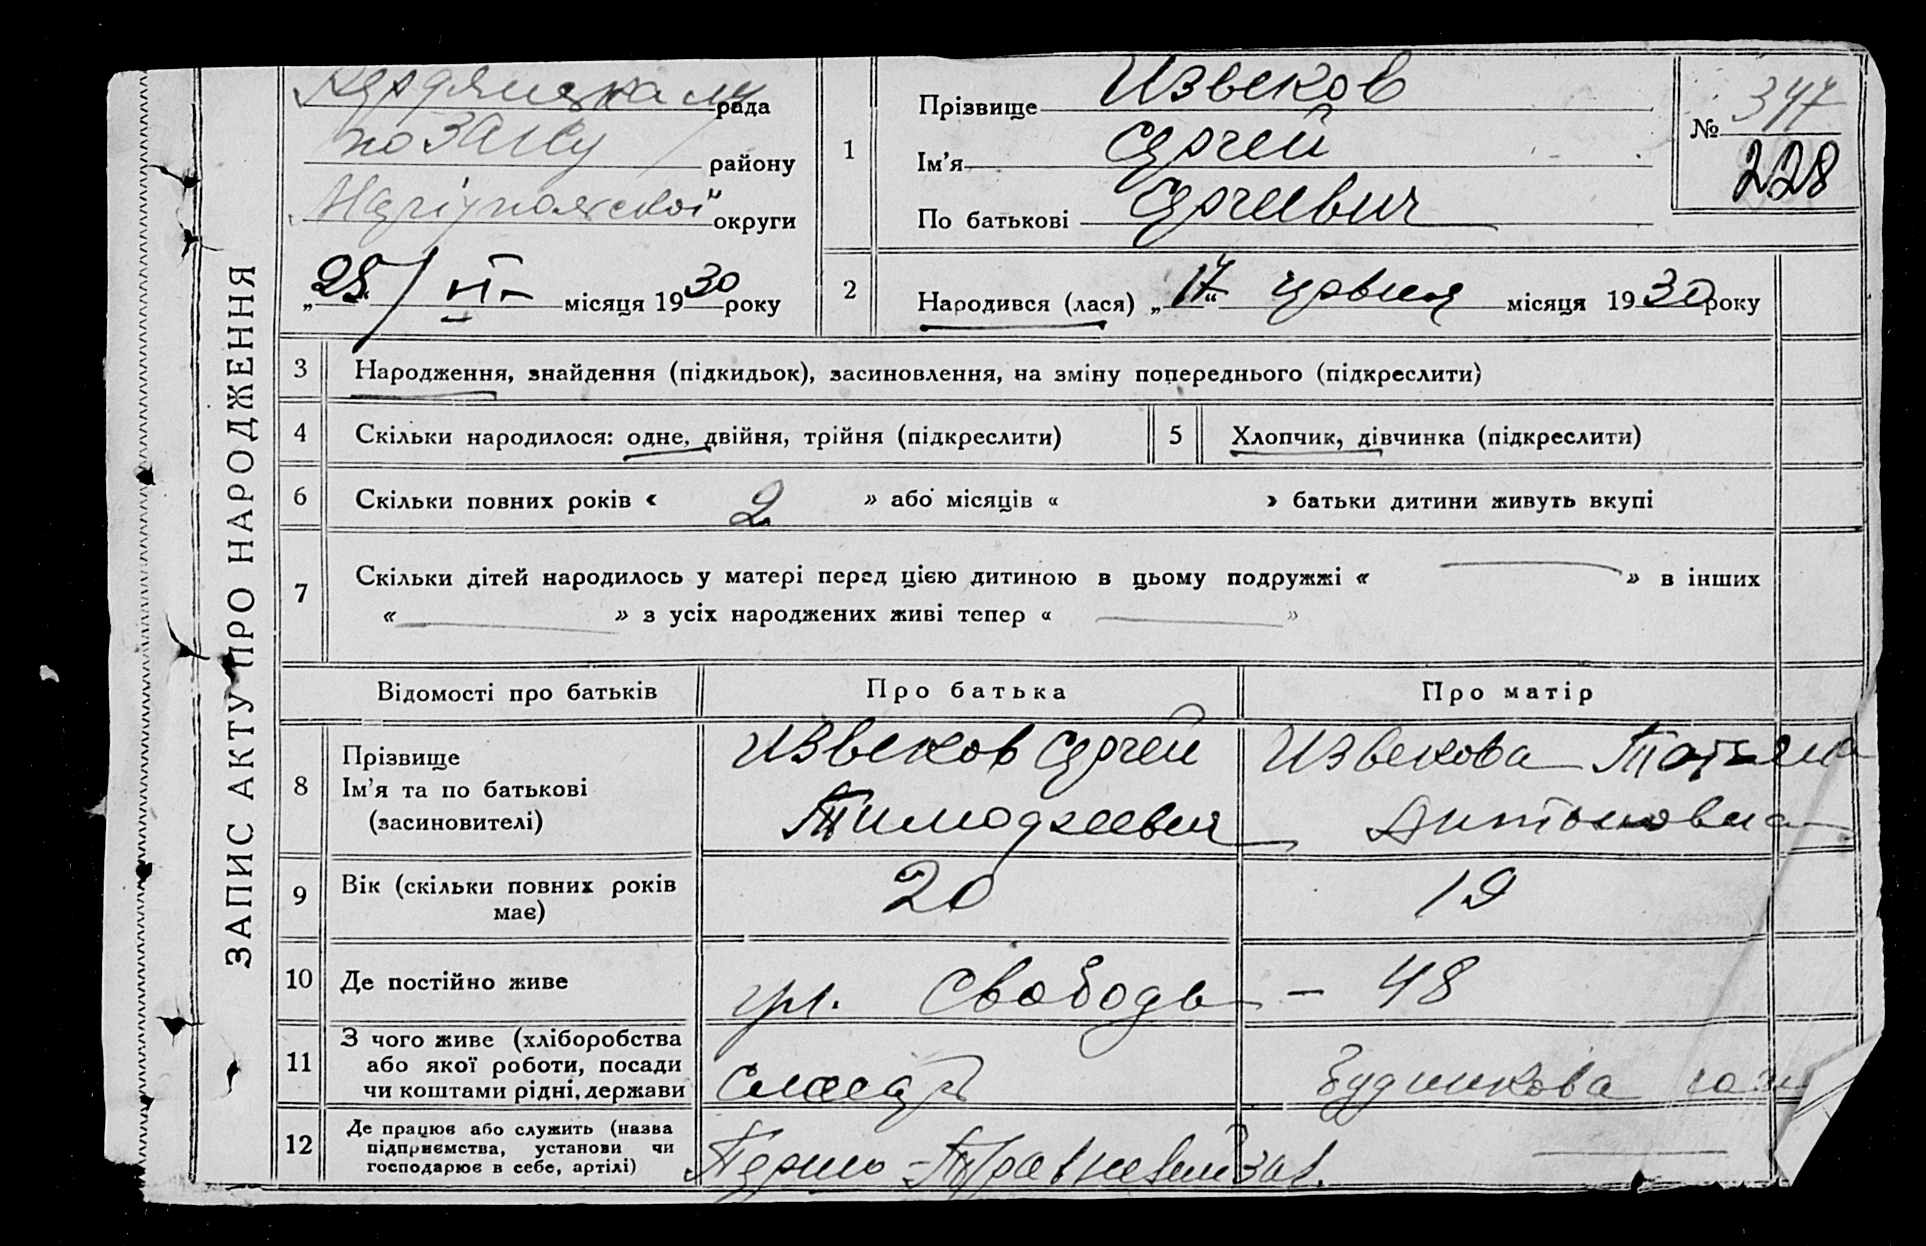 ЗАПИС АКТУ ПРО НАРОДЖЕННЯ
Бердянська м рада
по ЗАГСу району
Маріупольської округи
„25“ / VI місяця 1930 року
1
Прізвище Извеков
Ім’я Сергей
По батькові Сергеевич
№ 347
228
2
Народився (лася) „17“ червня місяця 1930 року
3 Народження, знайдення (підкидьок), засиновлення, на зміну попереднього (підкреслити)
4 Скільки народилося: одне, двійня, трійня (підкреслити) 5 Хлопчик, дівчинка (підкреслити)
6 Скільки повних років « 2 » або місяців « » батьки дитини живуть вкупі
7 Скільки дітей народилось у матері перед цією дитиною в цьому подружжі « — » в інших
« — » з усіх народжених живі тепер « — »
Відомості про батьків Про батька Про матір
8 Прізвище Ім’я та по батькові (засиновителі)
Извеков Сергей Тимофеевич
Извекова Татьяна Антоновна
9 Вік (скільки повних років має) 20 19
10 Де постійно живе ул. Свободы – 48
11 З чого живе (хліборобства або якої роботи, посади чи коштами рідні, держави
слесарь
12 Де працює або служить (назва підприємства, установи чи господарює в себе, артілі)
Первомайский Зав. —